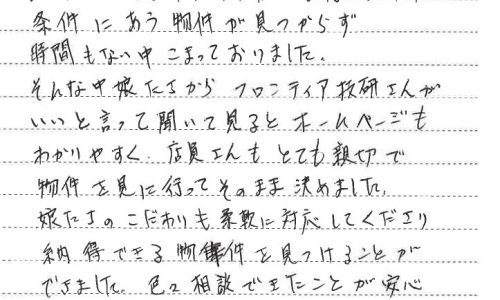 条件にあう物件が見つからず
時間もない中こまっておりました。
そんな中娘たちから フロンティア技研さんが
いいと言って聞いて見るとホームページも
わかりやすく、店員さんもとても親切で
物件を見に行ってそのまま決めました。
娘たちのこだわりも柔軟に対応してくださり
納得できる物件を見つけることが
できました。色々相談できたことが安心